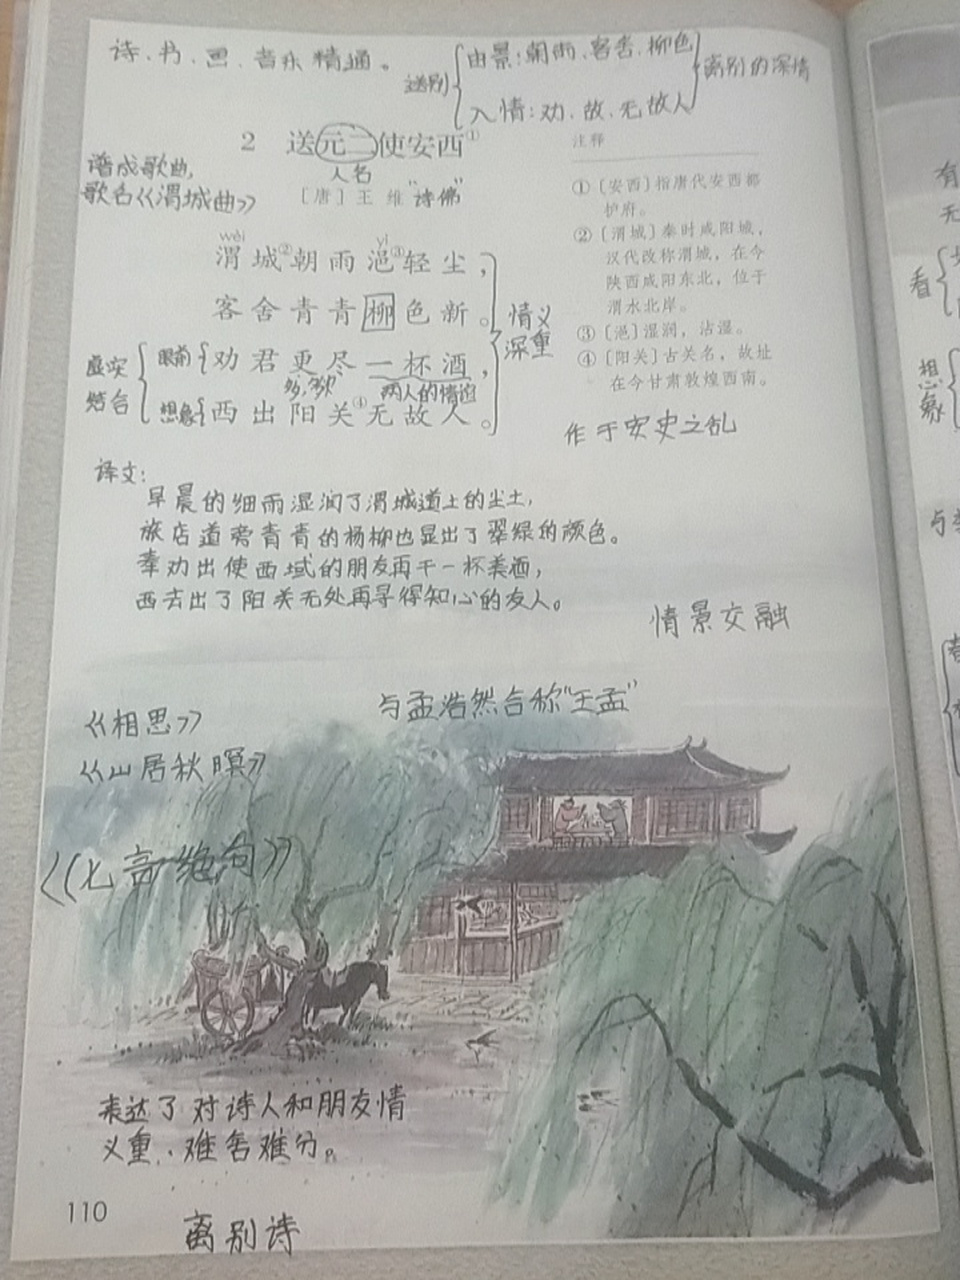 诗、书、画、音乐精通。
送别
由景:朝雨、客舍、柳色
入情:劝、故、无故人
离别的深情
2 送元二使安西①
人名
谱成歌曲,
歌名《渭城曲》
[唐] 王 维 "诗佛"
wèi yì
渭城②朝雨浥③轻尘,
客舍青青柳色新。
劝君更尽一杯酒,
西出阳关④无故人。
情义
深重
虚实
结合
眼前
想象
两人的情谊
注释
① [安西] 指唐代安西都
护府。
② [渭城] 秦时咸阳城,
汉代改称渭城,在今
陕西咸阳东北,位于
渭水北岸。
③ [浥] 湿润,沾湿。
④ [阳关] 古关名,故址
在今甘肃敦煌西南。
作于安史之乱
译文:
早晨的细雨湿润了渭城道上的尘土,
旅店道旁青青的杨柳也显出了翠绿的颜色。
奉劝出使西域的朋友再干一杯美酒,
西去出了阳关无处再寻得知心的友人。
情景交融
与孟浩然合称"王孟"
《相思》
《山居秋暝》
《七言绝句》
表达了对诗人和朋友情
义重、难舍难分。
110
离别诗
有
无
看
想
象
与